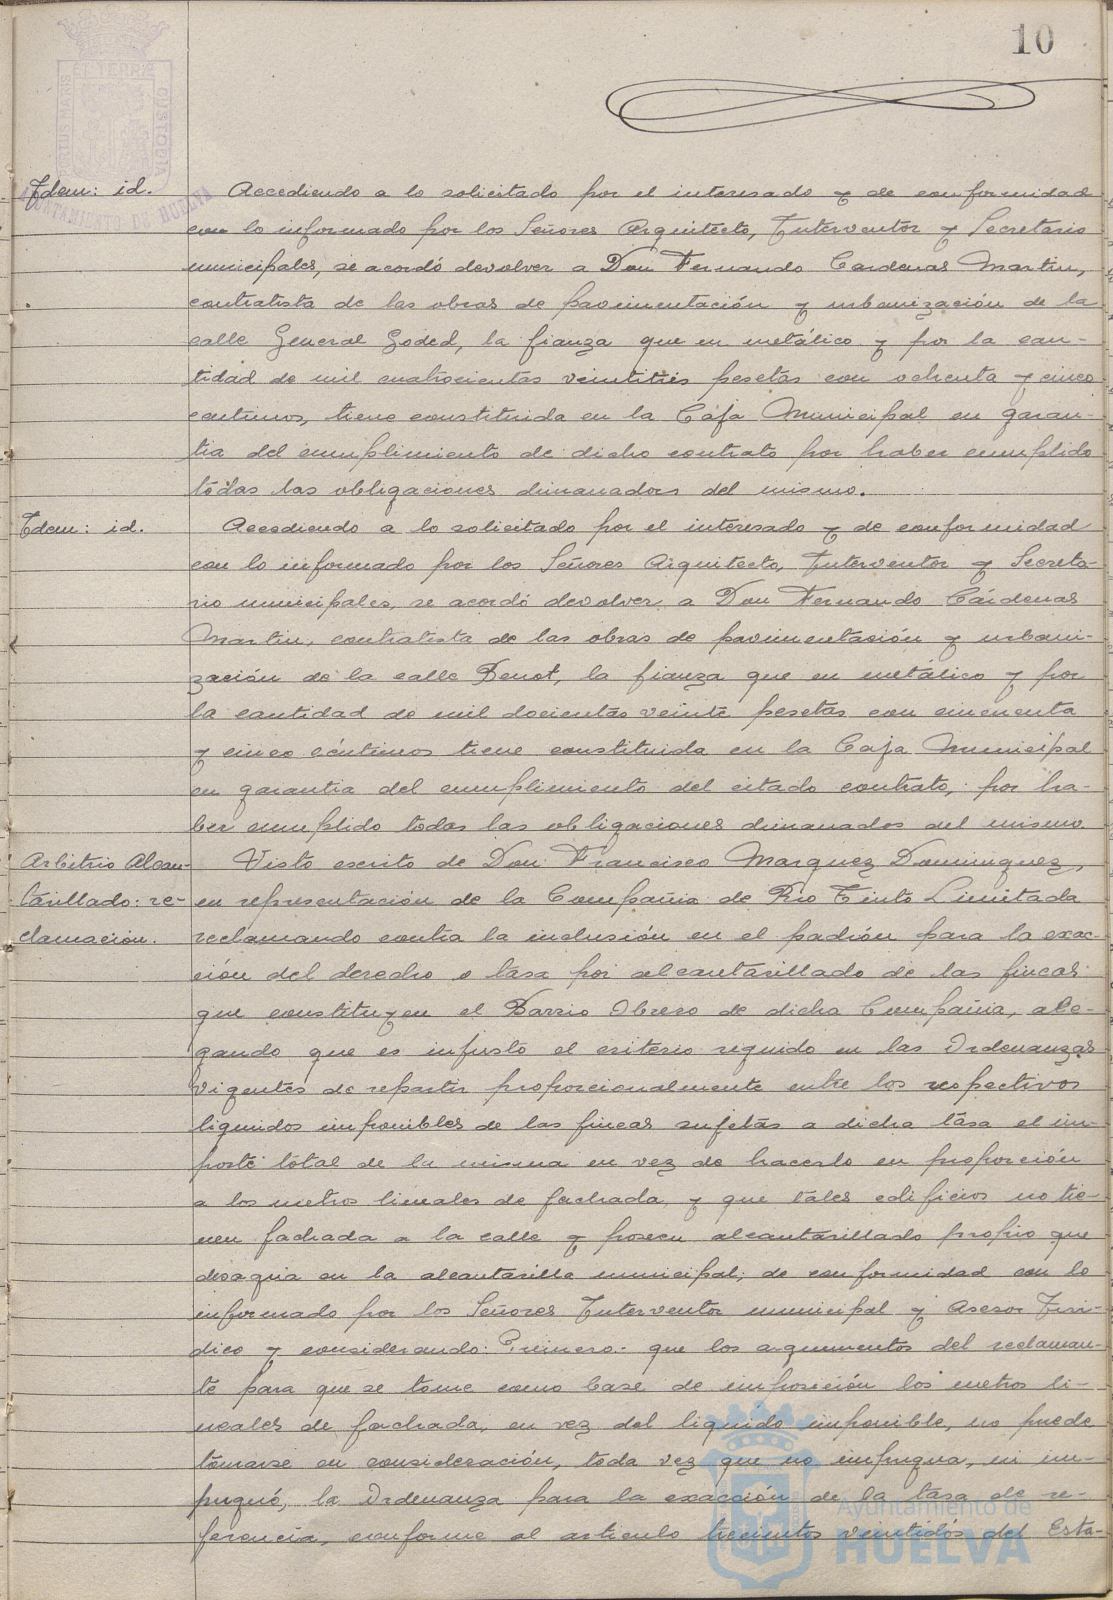 10
PORTUS MARIS ET TERRÆ CUSTODIA
AYUNTAMIENTO DE HUELVA
Idem: id.
Accediendo a lo solicitado por el interesado y de conformidad
con lo informado por los Señores Arquitecto, Interventor y Secretario
municipales, se acordó devolver a Don Fernando Cardenas Martin,
contratista de las obras de pavimentación y urbanización de la
calle General Goded, la fianza que en metálico y por la can-
tidad de mil cuatrocientas veintitrés pesetas con ochenta y cinco
centimos, tiene constituida en la Caja Municipal en garan-
tia del cumplimiento de dicho contrato por haber cumplido
todas las obligaciones dimanadas del mismo.
Idem: id.
Accediendo a lo solicitado por el interesado y de conformidad
con lo informado por los Señores Arquitecto, Interventor y Secreta-
rio municipales, se acordó devolver a Don Fernando Cárdenas
Martin, contratista de las obras de pavimentación y urbani-
zación de la calle Benot, la fianza que en metálico y por
la cantidad de mil docientas veinte pesetas con cincuenta
y cinco céntimos tiene constituida en la Caja Municipal
en garantia del cumplimiento del citado contrato, por ha-
ber cumplido todas las obligaciones dimanadas del mismo.
Arbitrio Alcan-
tarillado: re-
clamación.
Visto escrito de Don Francisco Marquez Dominguez,
en representación de la Compañia de Rio Tinto Limitada
reclamando contra la inclusión en el padrón para la exac-
ción del derecho o tasa por alcantarillado de las fincas
que constituyen el Barrio Obrero de dicha Compañia, ale-
gando que es injusto el criterio seguido en las Ordenanzas
vigentes de repartir proporcionalmente entre los respectivos
liquidos imponibles de las fincas sujetas a dicha tasa el im-
porte total de la misma en vez de hacerlo en proporción
a los metros lineales de fachada, y que tales edificios no tie-
nen fachada a la calle y poseen alcantarillado propio que
desagua en la alcantarilla municipal; de conformidad con lo
informado por los Señores Interventor municipal y Asesor Juri-
dico y considerando: Primero.- que los argumentos del reclaman-
te para que se tome como base de imposición los metros li-
neales de fachada, en vez del liquido imponible, no puede
tomarse en consideración, toda vez que no impugna, ni im-
pugnó, la Ordenanza para la exacción de la tasa de re-
ferencia, conforme al articulo trecientos veintidós del Esta-
Ayuntamiento de
HUELVA